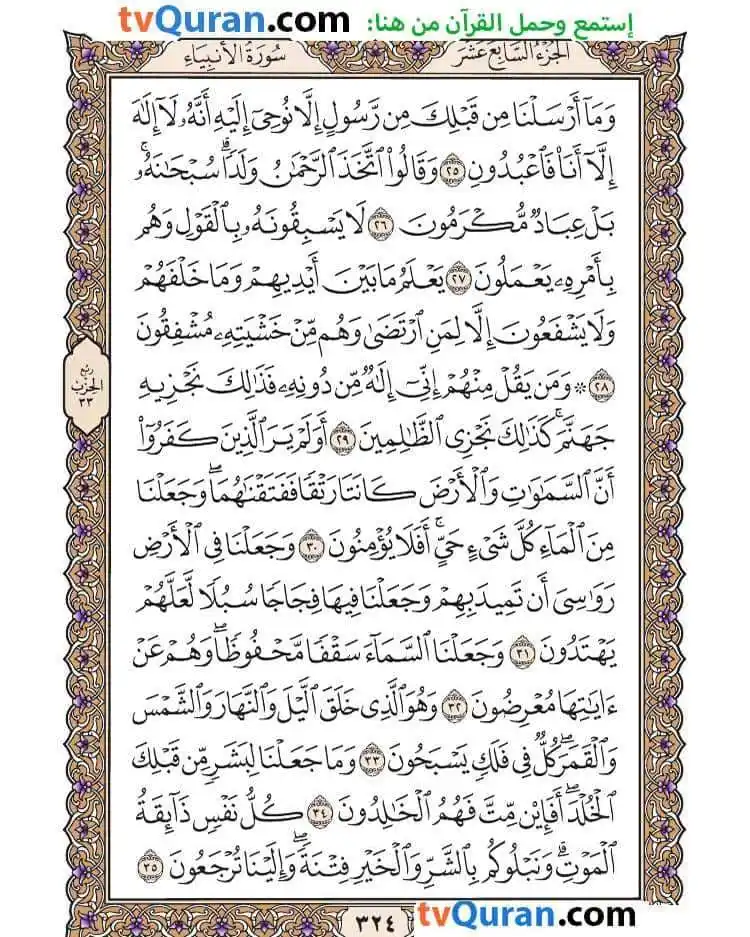 إستمع وحمل القرآن من هنا: tvQuran.com
الجزء السابع عشر
سورة الأنبياء
وَمَآ أَرۡسَلۡنَا مِن قَبۡلِكَ مِن رَّسُولٍ إِلَّا نُوحِيٓ إِلَيۡهِ أَنَّهُۥ لَآ إِلَٰهَ
إِلَّآ أَنَا۠ فَٱعۡبُدُونِ ٢٥ وَقَالُواْ ٱتَّخَذَ ٱلرَّحۡمَٰنُ وَلَدٗاۗ سُبۡحَٰنَهُۥۚ
بَلۡ عِبَادٞ مُّكۡرَمُونَ ٢٦ لَا يَسۡبِقُونَهُۥ بِٱلۡقَوۡلِ وَهُم
بِأَمۡرِهِۦ يَعۡمَلُونَ ٢٧ يَعۡلَمُ مَا بَيۡنَ أَيۡدِيهِمۡ وَمَا خَلۡفَهُمۡ
وَلَا يَشۡفَعُونَ إِلَّا لِمَنِ ٱرۡتَضَىٰ وَهُم مِّنۡ خَشۡيَتِهِۦ مُشۡفِقُونَ
٢٨ ۞ وَمَن يَقُلۡ مِنۡهُمۡ إِنِّيٓ إِلَٰهٞ مِّن دُونِهِۦ فَذَٰلِكَ نَجۡزِيهِ
جَهَنَّمَۚ كَذَٰلِكَ نَجۡزِي ٱلظَّٰلِمِينَ ٢٩ أَوَلَمۡ يَرَ ٱلَّذِينَ كَفَرُوٓاْ
أَنَّ ٱلسَّمَٰوَٰتِ وَٱلۡأَرۡضَ كَانَتَا رَتۡقٗا فَفَتَقۡنَٰهُمَاۖ وَجَعَلۡنَا
مِنَ ٱلۡمَآءِ كُلَّ شَيۡءٍ حَيٍّۚ أَفَلَا يُؤۡمِنُونَ ٣٠ وَجَعَلۡنَا فِي ٱلۡأَرۡضِ
رَوَٰسِيَ أَن تَمِيدَ بِهِمۡ وَجَعَلۡنَا فِيهَا فِجَاجٗا سُبُلٗا لَّعَلَّهُمۡ
يَهۡتَدُونَ ٣١ وَجَعَلۡنَا ٱلسَّمَآءَ سَقۡفٗا مَّحۡفُوظٗاۖ وَهُمۡ عَنۡ
ءَايَٰتِهَا مُعۡرِضُونَ ٣٢ وَهُوَ ٱلَّذِي خَلَقَ ٱلَّيۡلَ وَٱلنَّهَارَ وَٱلشَّمۡسَ
وَٱلۡقَمَرَۖ كُلّٞ فِي فَلَكٖ يَسۡبَحُونَ ٣٣ وَمَا جَعَلۡنَا لِبَشَرٖ مِّن قَبۡلِكَ
ٱلۡخُلۡدَۖ أَفَإِيْن مِّتَّ فَهُمُ ٱلۡخَٰلِدُونَ ٣٤ كُلُّ نَفۡسٖ ذَآئِقَةُ
ٱلۡمَوۡتِۗ وَنَبۡلُوكُم بِٱلشَّرِّ وَٱلۡخَيۡرِ فِتۡنَةٗۖ وَإِلَيۡنَا تُرۡجَعُونَ ٣٥
ربع
الحزب
٣٣
٣٢٤
tvQuran.com